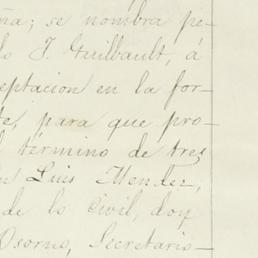 ña; se nombra pe-
lo J. Guilbault, á
eptacion en la for-
te, para que pro-
l término de tres
n Luis Mendez,
de lo civil, doy
Osorno, Secretario-